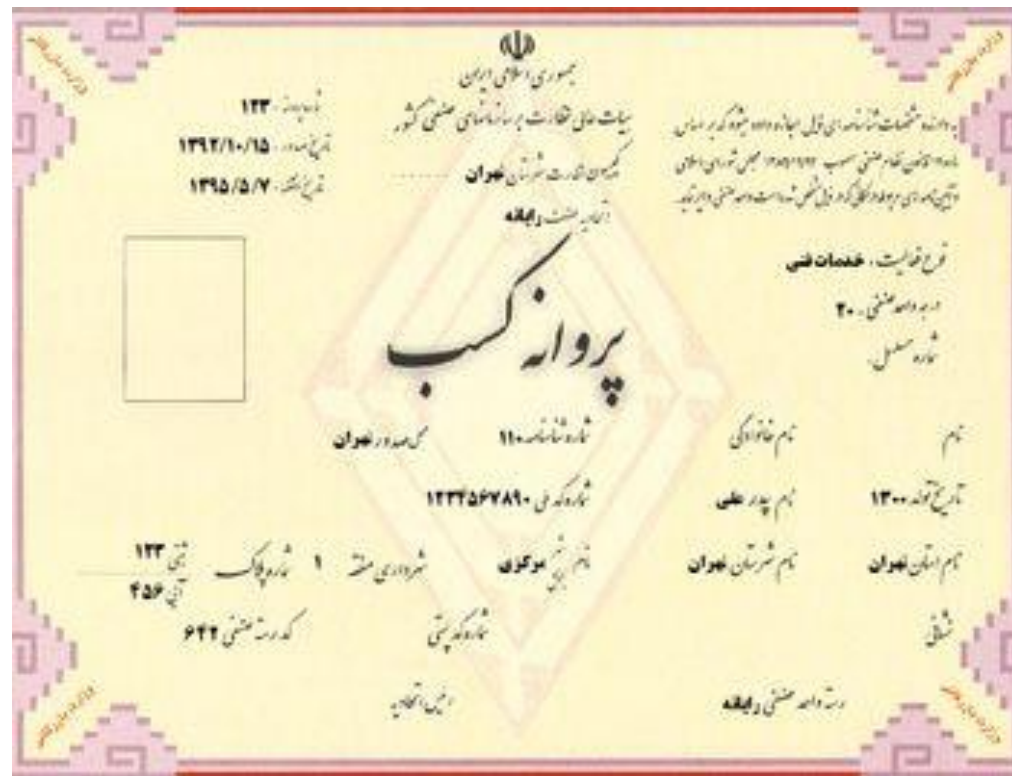 جمهوری اسلامی ایران
هیات عالی نظارت بر سازمانهای صنفی کشور
کمیسیون نظارت شهرستان تهران
اتحادیه صنف رایانه
شماره پروانه: ۱۲۳
تاریخ صدور: ۱۳۹۲/۱۰/۱۵
تاریخ انقضاء: ۱۳۹۵/۵/۷
به دارنده مشخصات شناسنامه ای ذیل اجازه داده میشود که بر اساس
قانون نظام صنفی مصوب مجلس شورای اسلامی
و آیین نامه های مربوطه در محلی که در ذیل مشخص شده است واحد صنفی دایر نماید.
نوع فعالیت: خدمات فنی
درجه واحد صنفی: ۲۰
شماره مسلسل:
پروانه کسب
نام نام خانوادگی شماره شناسنامه ۱۱۰ محل صدور تهران
تاریخ تولد ۱۳۰۰ نام پدر علی شماره کد ملی ۱۲۳۴۵۶۷۸۹۰
نام استان تهران نام شهرستان تهران نام شهر بخش مرکزی شهرداری منطقه ۱ شماره پلاک ثبتی ۱۲۳ آبی ۴۵۶
نشانی شماره کد پستی کد رسته صنفی ۶۴۲
رسته واحد صنفی رایانه رئیس اتحادیه